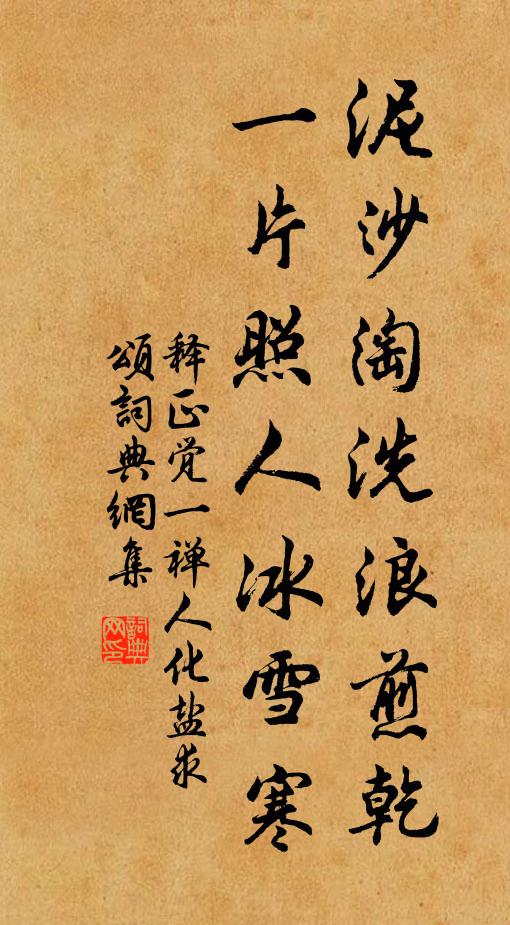 泥沙淘洗浪煎乾
一片照人冰雪寒
释正觉一禅人化盐求
頌詞典網集
詞典网印